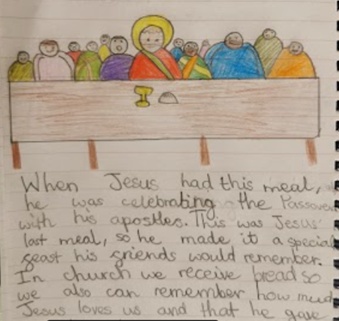 When Jesus had this meal,
he was celebrating the Passover
with his apostles. This was Jesus'
last meal, so he made it a special
feast his friends would remember.
In church we receive bread so
we also can remember how much
Jesus loves us and that he gave